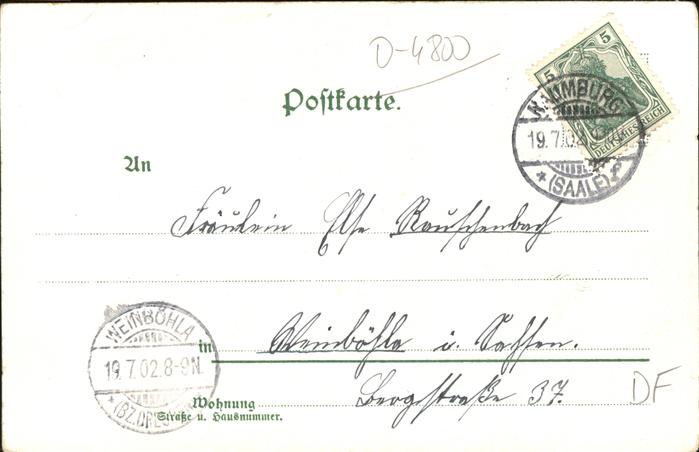 D-4800
5 5
DEUTSCHES REICH
NAUMBURG
19.7.02
* (SAALE) *
Postkarte.
An
Fräulein Else Rauschenbach
WEINBÖHLA
19.7.02.8-9N.
in Weinböhla i. Sachsen.
Wohnung
Straße u. Hausnummer.
Bergstraße 37.
DF